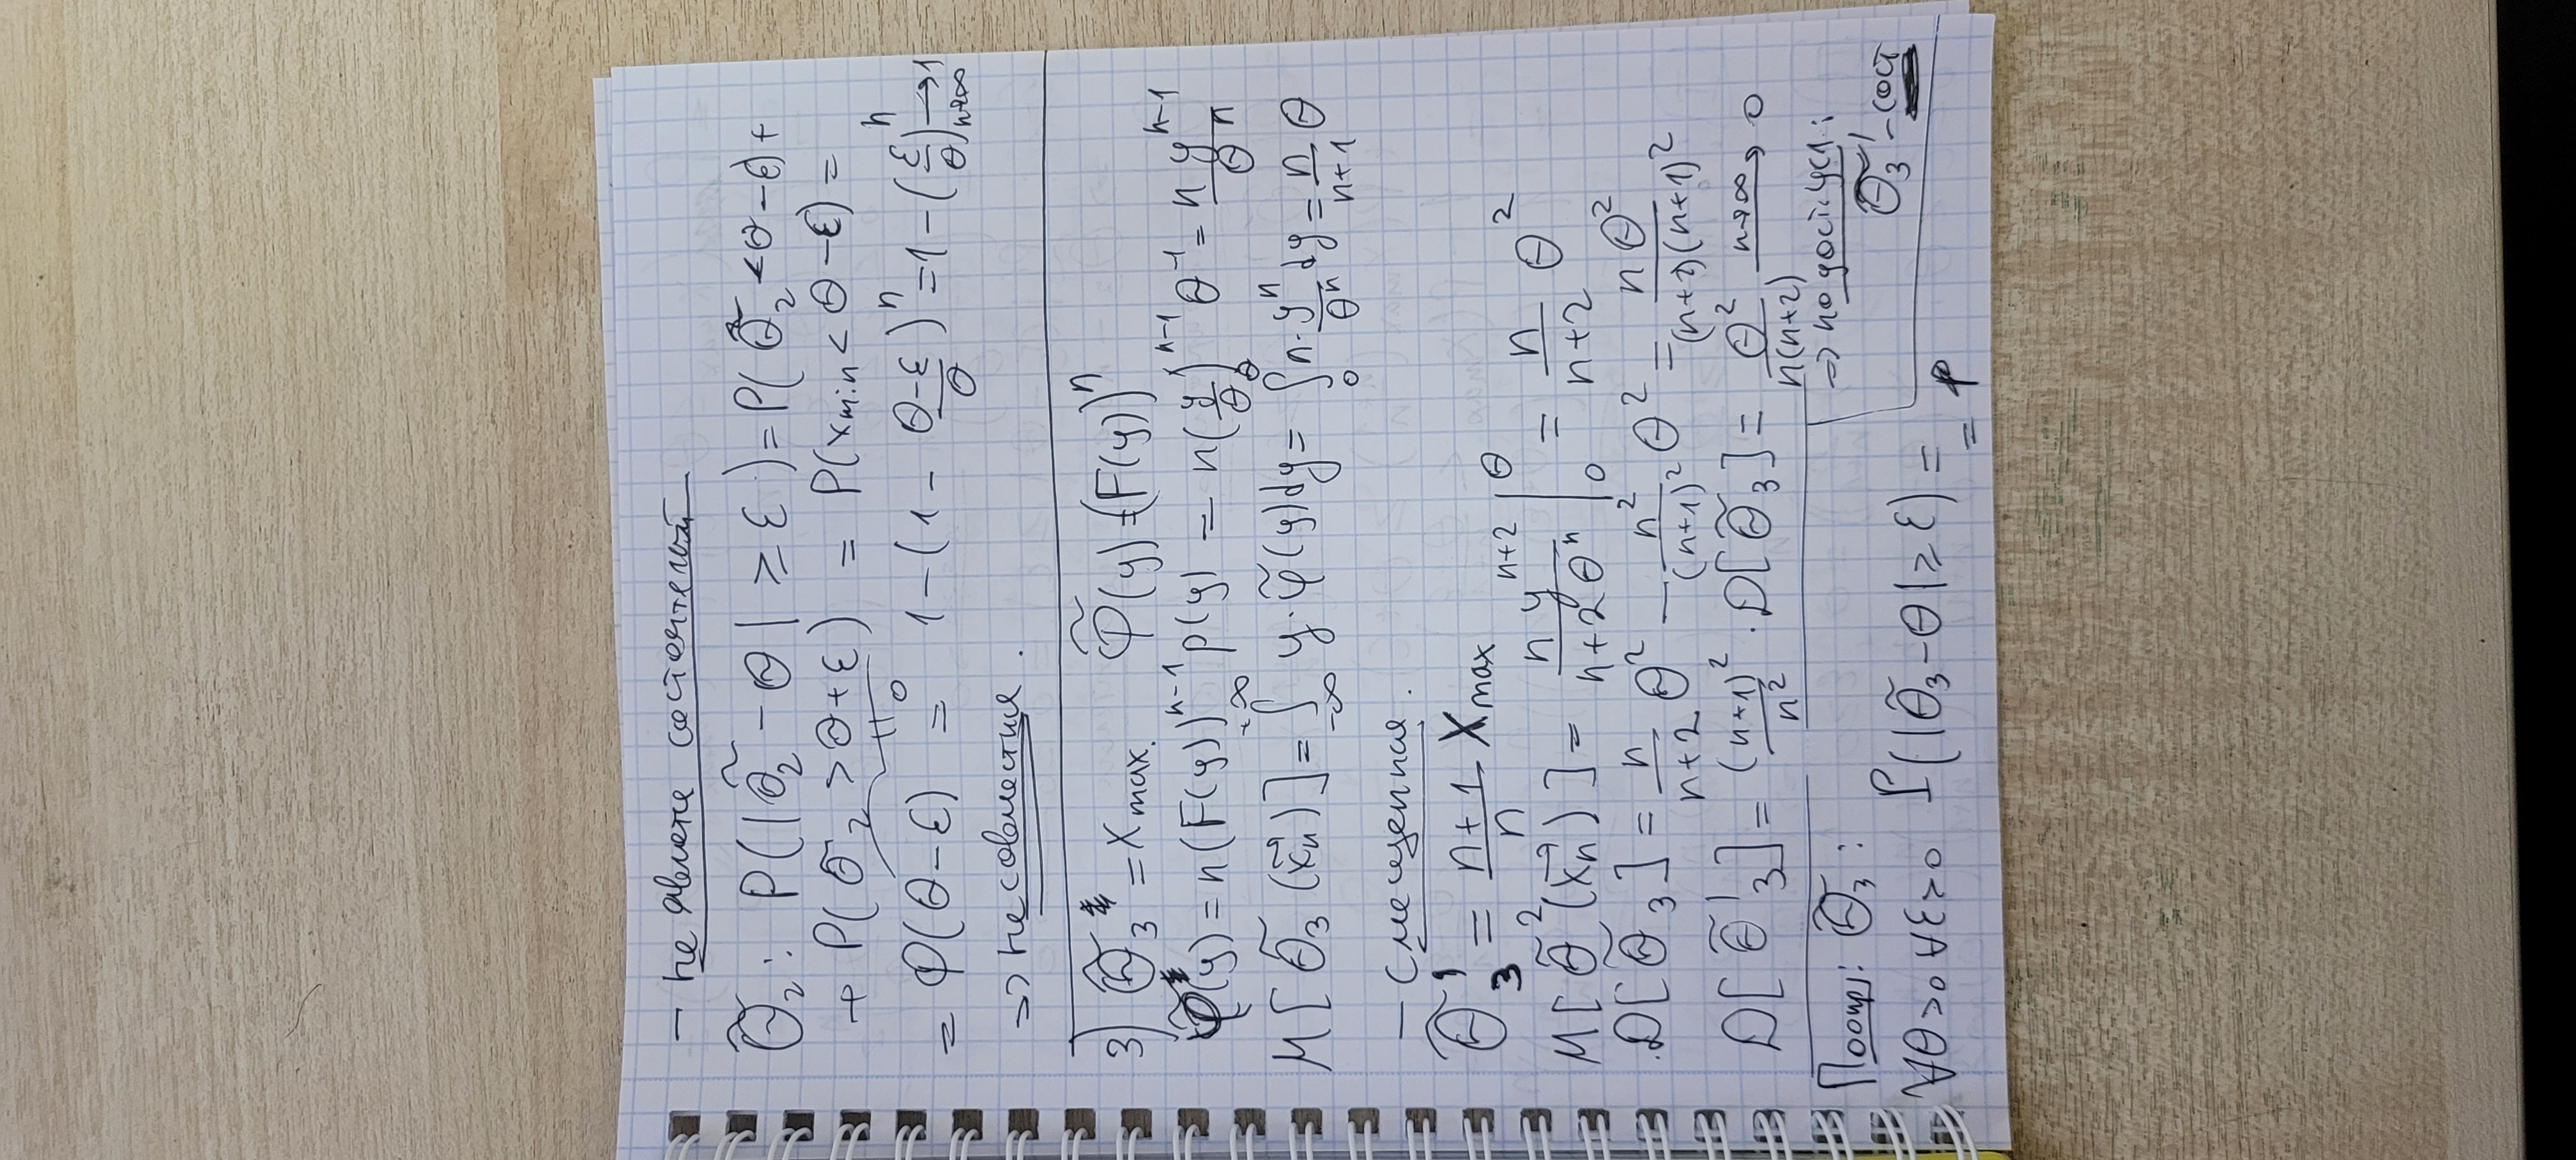 — не являетс состоятельной
θ̃₂: P(|θ̃₂ − θ| ≥ ε) = P(θ̃₂ < θ − ε) +
+ P(θ̃₂ > θ + ε) = P(xmin < θ − ε) =
"0
= Φ(θ − ε) = 1 − (1 − (θ−ε)/θ)ⁿ = 1 − (ε/θ)ⁿ → 1 n→∞
=> не совместися.
3) θ̃₃ = Xmax. Φ̃(y) = (F(y))ⁿ
φ̃(y) = n(F(y))ⁿ⁻¹ p(y) = n(y/θ)ⁿ⁻¹ θ⁻¹ = n yⁿ⁻¹/θⁿ
M[θ̃₃(x⃗ₙ)] = ∫₋∞^+∞ y·φ̃(y)dy = ∫₀^θ n·yⁿ/θⁿ dy = n/(n+1) θ
— Смещенная.
θ̃₃' = (n+1)/n Xmax
M[θ̃²(x⃗ₙ)] = n yⁿ⁺²/(n+2 θⁿ) |₀^θ = n/(n+2) θ²
D[θ̃₃] = n/(n+2) θ² − n²/(n+1)² θ² = nθ²/((n+2)(n+1)²)
D[θ̃₃'] = (n+1)²/n² · D[θ̃₃] = θ²/(n(n+2)) → 0 n→∞
=> по дост. усл.:
θ̃₃' – сост
θ̃₃:
∀θ>0 ∀ε>0 P(|θ̃₃ − θ| ≥ ε) =
= P